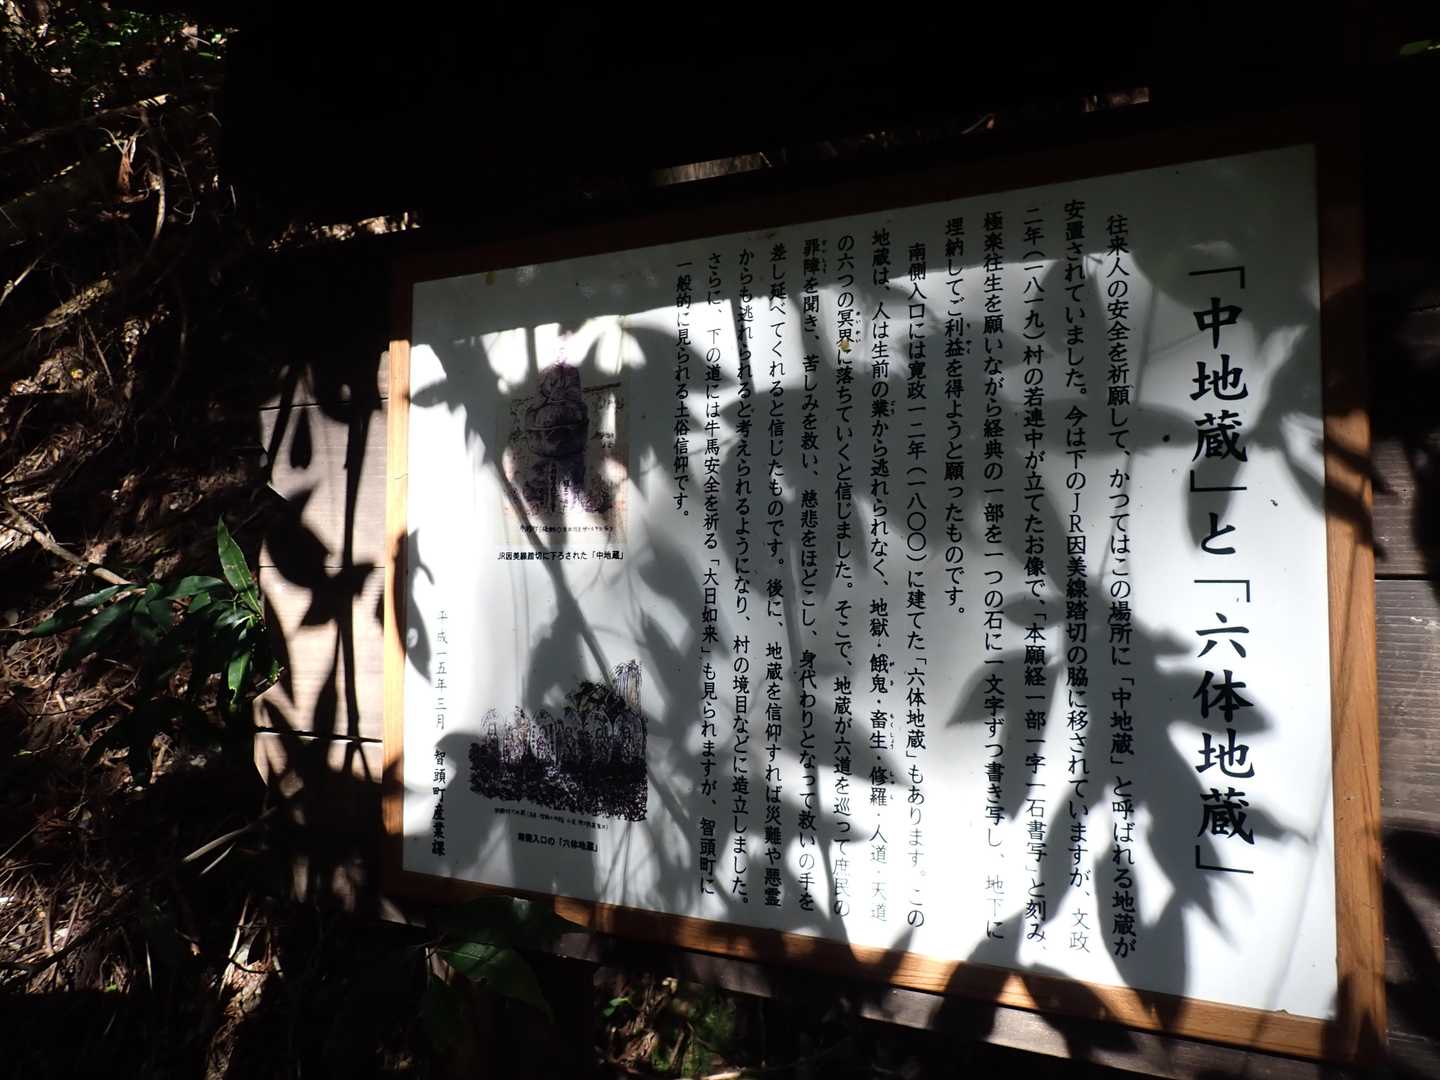 「中地蔵」と「六体地蔵」
往来人の安全を祈願して、かつてはこの場所に「中地蔵」と呼ばれる地蔵が
安置されていました。今は下のJR因美線踏切の脇に移されていますが、文政
二年(一八一九)村の若連中が立てたお像で、「本願経一部一字一石書写」と刻み、
極楽往生を願いながら経典の一部を一つの石に一文字ずつ書き写し、地下に
埋納してご利益を得ようと願ったものです。
南側入口には寛政一二年(一八〇〇)に建てた「六体地蔵」もあります。この
地蔵は、人は生前の業から逃れられなく、地獄・餓鬼・畜生・修羅・人道・天道
の六つの冥界に落ちていくと信じました。そこで、地蔵が六道を巡って庶民の
罪障を聞き、苦しみを救い、慈悲をほどこし、身代わりとなって救いの手を
差し延べてくれると信じたものです。後に、地蔵を信仰すれば災難や悪霊
からも逃れられると考えられるようになり、村の境目などに造立しました。
さらに、下の道には牛馬安全を祈る「大日如来」も見られますが、智頭町に
一般的に見られる土俗信仰です。
JR因美線踏切に下ろされた「中地蔵」
南側入口の「六体地蔵」
平成一五年三月 智頭町産業課